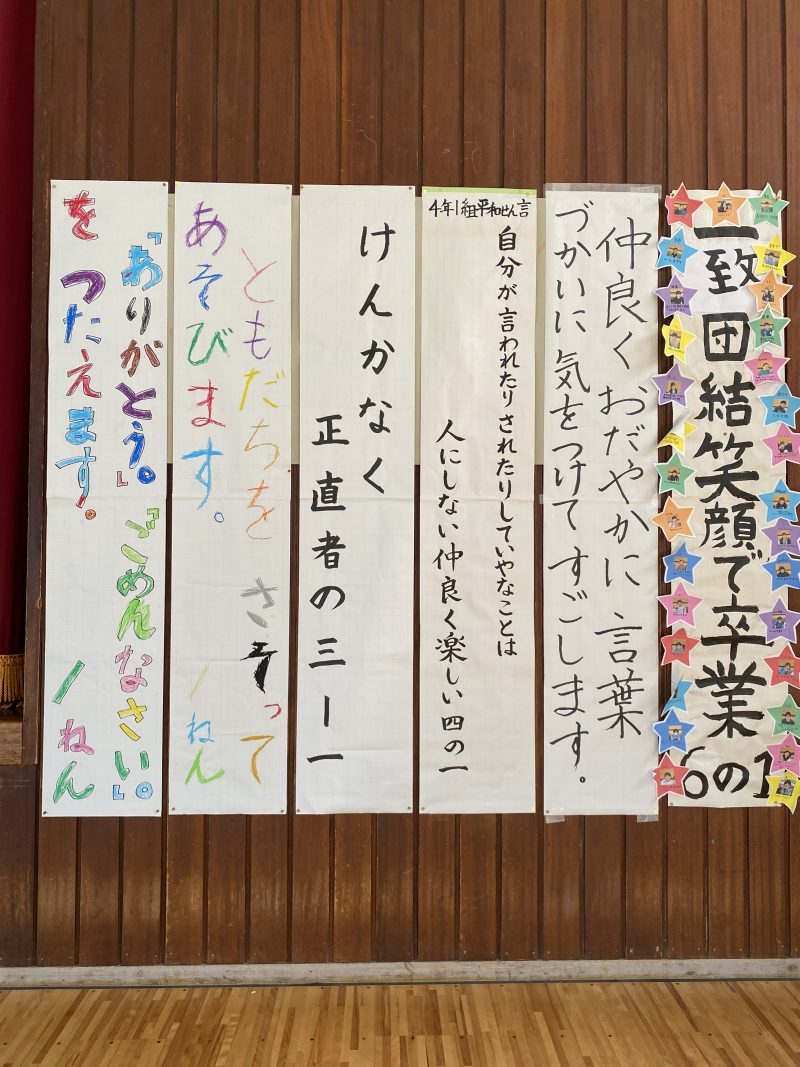 一致団結笑顔で卒業
6の1
仲良くおだやかに言葉
づかいに気をつけてすごします。
4年1組平和せん言
自分が言われたりされたりしていやなことは
人にしない仲良く楽しい四の一
けんかなく
正直者の三ー一
ともだちを さそって
あそびます。 1ねん
「ありがとう。」「ごめんなさい。」
を つたえます。 1ねん